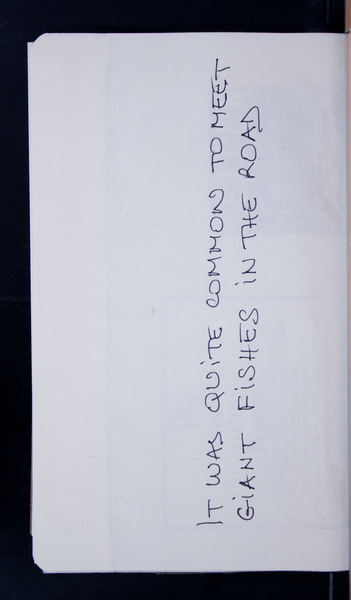 IT WAS QUITE COMMON TO MEET
GIANT FISHES IN THE ROAD